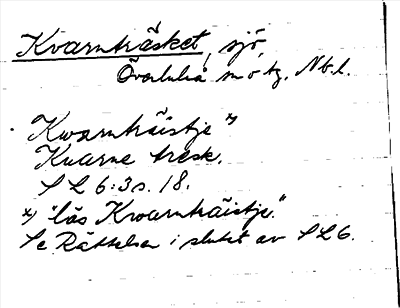 Kvarnträsket, sjö,
Överluleå sn o tg, Nb.l.
"Kwarnträistje" x)
Kuarne tresk.
SL 6:3 s. 18.
x) "läs Kwarnträistje."
Se Rättelser i slutet av SL6.